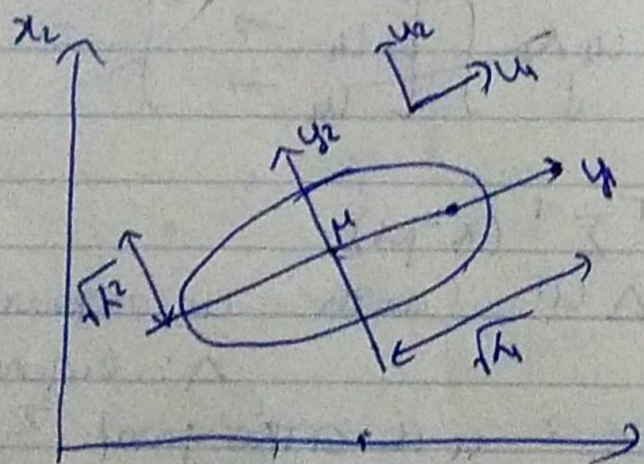 x₂
u₂
u₁
y₂
y₁
μ
√λ₂
√λ₁